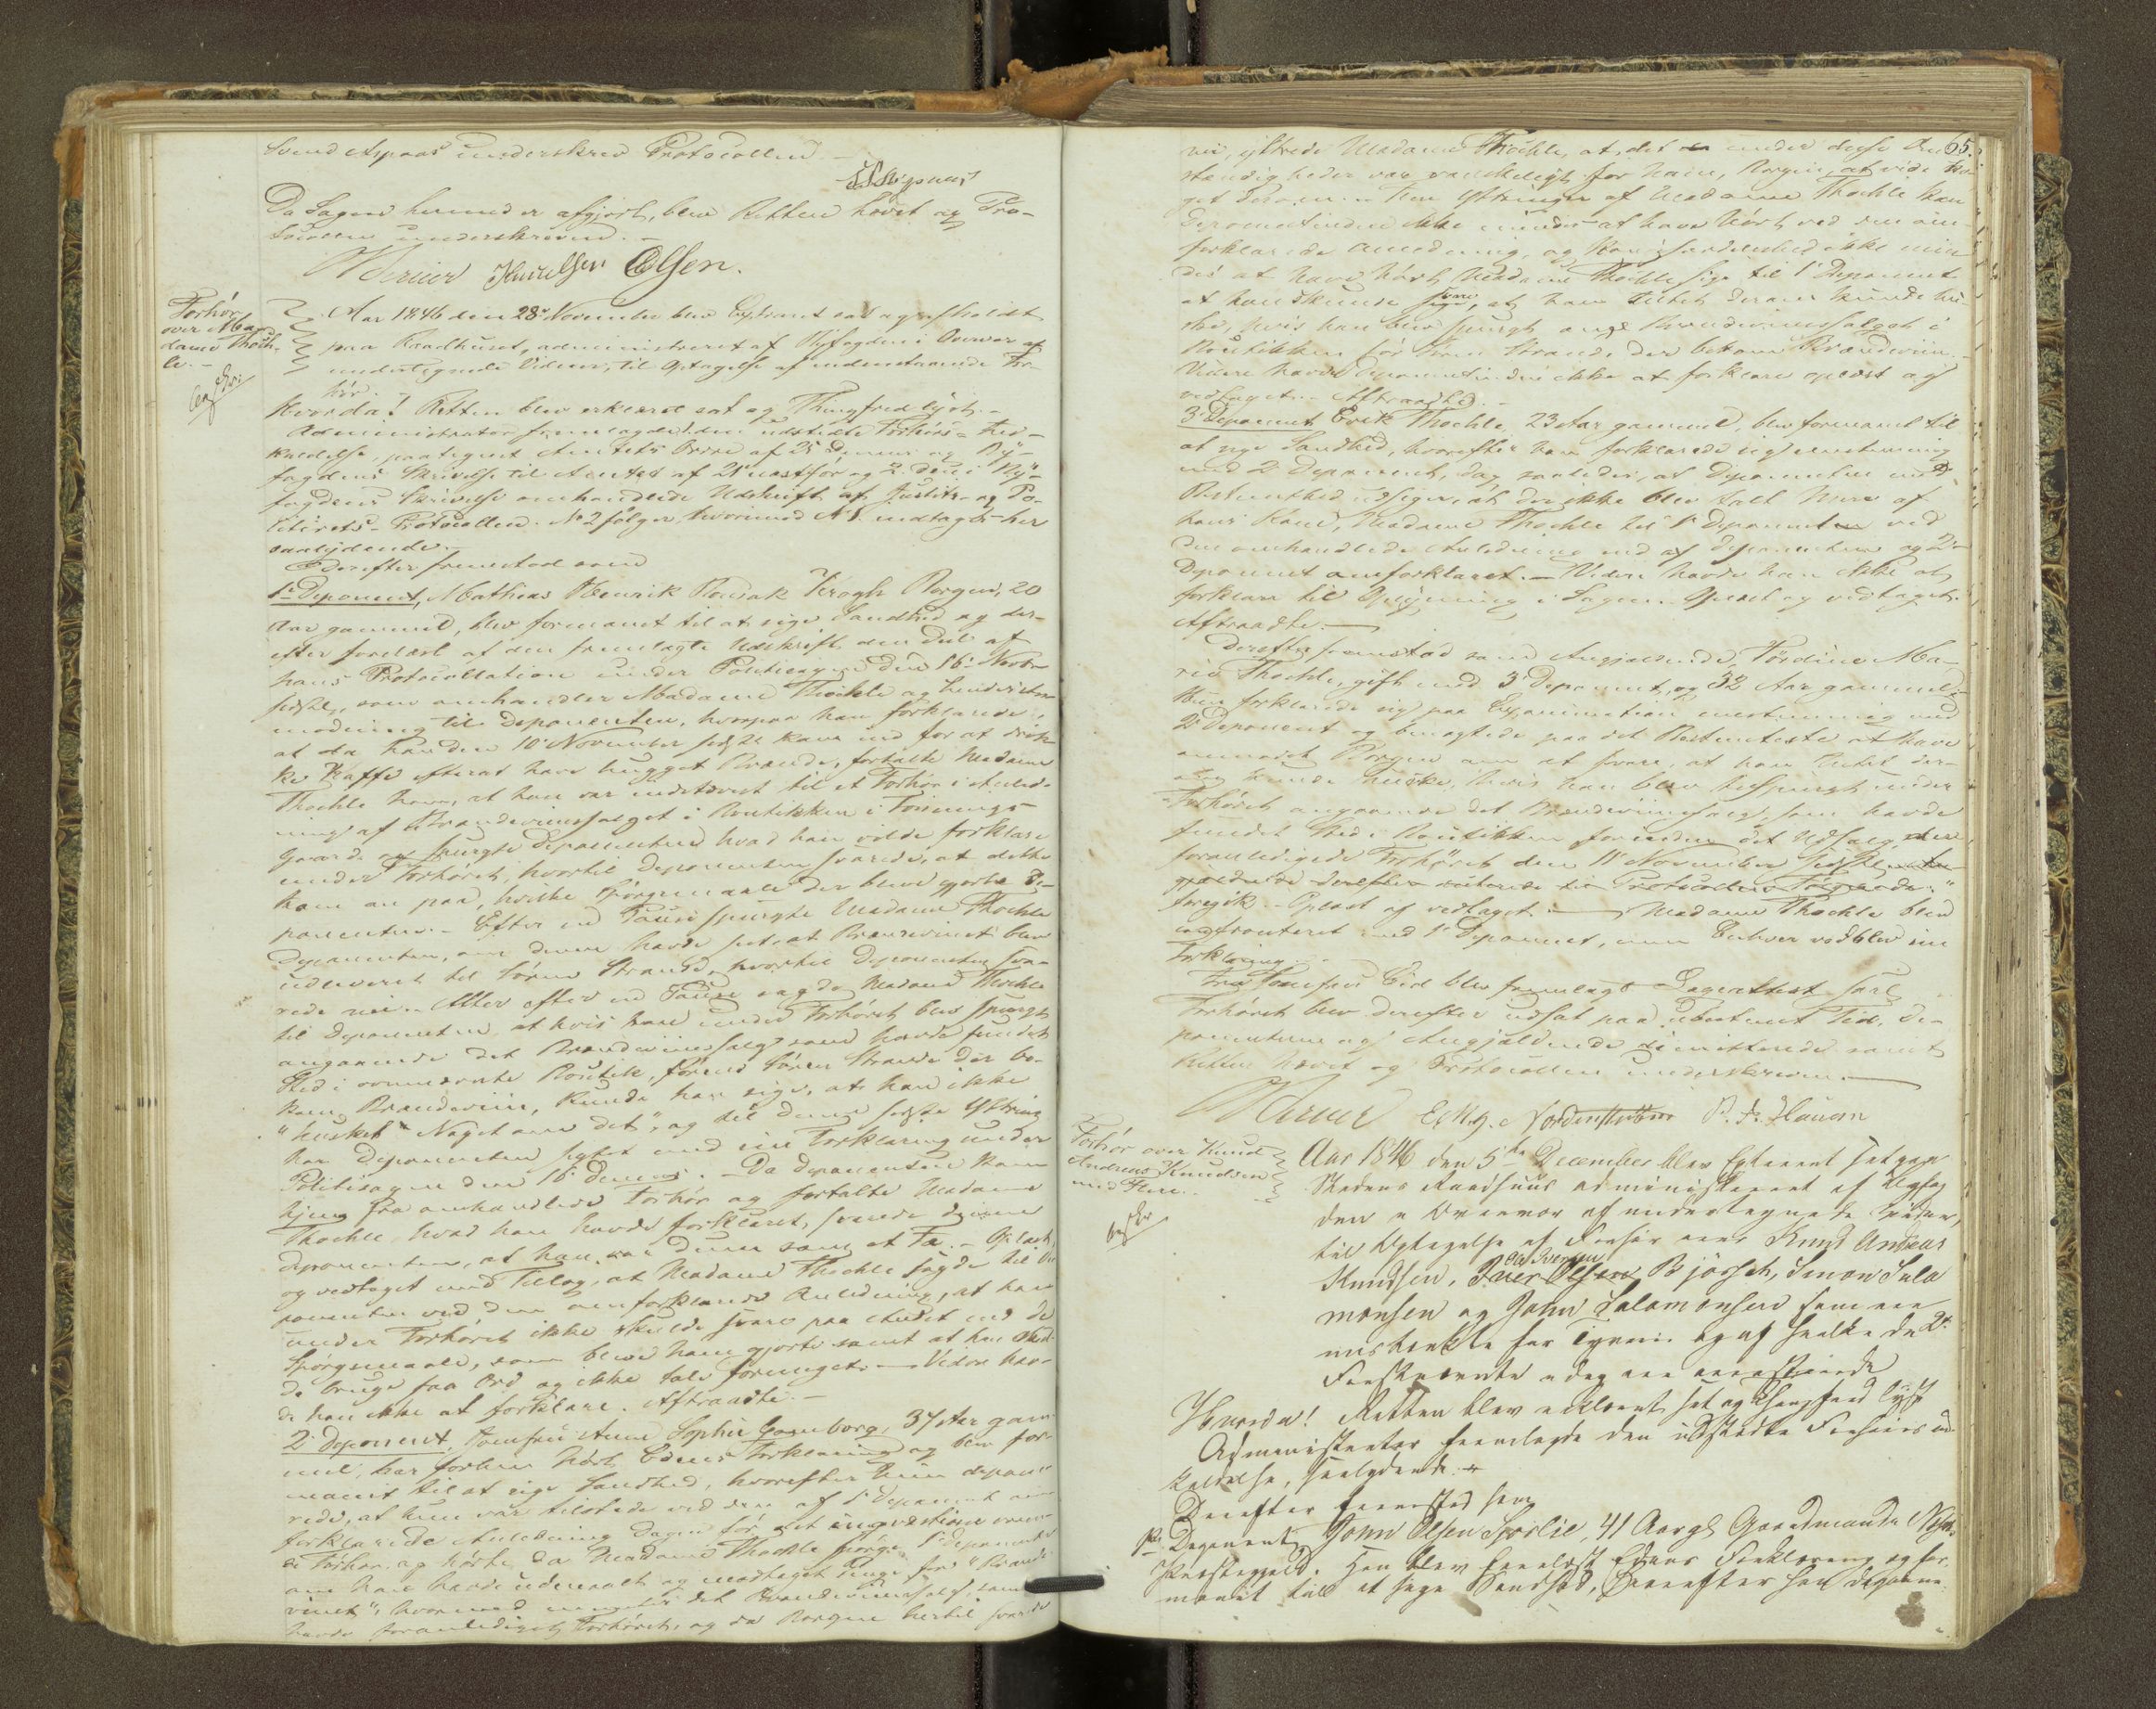 Svend Aspaas underskrev Protocollen.
SAspaas
Da Sagen hermed er afgjort, blev Retten hævet og Pro-
tocollen underskreven.
Werner Knudsen Olsen.
Forhør
over Ma-
dame Thoch-
le.
Aar 1846 den 28de November blev Extraret sat og afholdt
paa Raadhuset, administreret af Byfogden i Overvær af
undertegnede Vidner, til Optagelse af nedenstaaende For-
hør.
Hvorda! Retten blev erklæret sat og Thingfred lyst.
Administrator fremlagde den udstedte Forhørs-Ind-
kaldelse, paategnet Amtets Ordre af 25 dennes og By-
fogdens Skrivelse til Amtet af 21 næstfør og 2. den i By-
fogdens Skrivelse omhandlede Udskrift af Justits- og Po-
litirets-Protocollen. No 2 følger, hvorimod No 1. indtages her
saalydende.
Derefter fremstod som
1ste Deponent, Mathias Henrik Krogh Borgen, 20
Aar gammel, blev formanet til at sige Sandhed og der-
efter forelæst af den fremlagte Udskrift den Deel af
hans Protocollation under Politisagen den 16de Novbr
sidstl., som omhandler Madame Thochle og hendes An-
modning til Deponenten, hvorpaa han forklarede,
at da han den 10de November sidstl. kom ind for at drik-
ke Kaffe efterat have hugget Brænde, fortalte Madame
Thochle ham, at han var indstævnt til et Forhør i Anled-
ning af Brændeviinssalget i Boutikken i
Gaarde og spurgte Deponenten hvad han vilde forklare
under Forhøret, hvortil Deponenten svarede, at dette
kom an paa, hvilke Spørgsmaale der bleve gjorte De-
ponenten. Efter en Pause spurgte Madame Thochle
Deponenten, om denne havde seet, at Brændevinet blev
udleveret til Søren Strande, hvortil Deponenten sva-
rede nei. Atter efter en Pause sagde Madame Thochle
til Deponenten, at hvis han under Forhøret blev spurgt
angaaende det Brændeviinssalg som havde fundet
Sted i ovennævnte Boutik, førend Søren Strande der be-
kom Brændeviin, kunde han sige, at han ikke
"husket Noget om det", og til denne sidste Yttring
har Deponenten sigtet med sin Forklaring under
Politisagen den 16de Dennes. Da Deponenten kom
hjem fra omhandlede Forhør og fortalte Madame
Thochle hvad han havde forklaret, svarede denne
Deponenten, at han var dum som et Fæ. Oplæst
og vedtaget med Tillæg, at Madame Thochle sagde til De-
ponenten ved den omforklarede Anledning, at han
under Forhøret ikke skulde svare paa Andet end de
Spørgsmaale, som bleve ham gjorte samt at han skul-
de bruge faa Ord og ikke tale formeget. Videre hav-
de han ikke at forklare. Aftraadte.
2den Deponent, Jomfru Anne Sophie Gamborg, 37 Aar gam-
mel, har forhen hørt Edens Forklaring og blev for-
manet til at sige Sandhed, hvorefter hun depone-
rede, at hun var tilstede ved den af 1ste Deponent om-
forklarede Anledning Dagen før det inqvæstione væren-
de Forhør og hørte, da Madame Thochle spørge 1ste Deponent
om han havde udmaalt og modtaget Penge for "Brænde-
vinet", hvormed meentes det Brændeviinssalg, som
havde foranlediget Forhøret, og da Borgen hertil svarede
65.
nei, yttrede Madame Thochle, at det under disse Om-
stændigheder var vanskeligt for ham, Borgen, at vide No-
get derom. Den Yttringen af Madame Thochle kan
Deponentinden ikke mindes at have hørt ved den om-
forklarede Anledning, og kan isærdeleshed ikke min-
des at have hørt Madame Thochle sige til 1ste Deponent
at han skulde svare, at han Intet derom kunde hu-
ske, hvis han blev spurgt ang. Brændeviinssalget i
Boutikken før Søren Strande der bekom Brændeviin.
Videre havde Deponentinden ikke at forklare oplæst og
vedtaget. Aftraadte.
3de Deponent Erik Thochle, 23 Aar gammel, blev formanet til
at sige Sandhed, hvorefter han forklarede sig eenstemmig
med 2den Deponent, dog saaledes, at Deponenten med
Bestemthed udsiger, at der ikke blev talt Mere af
hans Kone, Madame Thochle til 1ste Deponenten ved
den omhandlede Anledning end af Deponenten og 2den
Deponent omforklaret. Videre havde han ikke at
forklare til Oplysning i Sagen. Oplæst og vedtaget.
Aftraadte.
Derefter fremstod som Angjældende, Ma-
rie Thochle, gift med 3de Deponent, og 32 Aar gammel.
Hun forklarede sig paa Examination eenstemmig med
2den Deponent og benægtede paa det Bestemteste at have
anmodet Borgen om at svare, at han Intet der-
om kunde huske, hvis han blev tilspurgt under
Forhøret angaaende det Brændeviinssalg, som havde
fundet Sted i Boutikken forinden det Udsalg, der
foranledigede Forhøret den 11te November sidstl.
foregik. Oplæst og vedtaget. Madame Thochle blev
confronteret med 1ste Deponent, men Enhver vedblev sin
Forklaring.
Eid blev fremlagt Lægeattest saal.
Forhøret blev derefter udsat paa ubestemt Tid, De-
ponenterne og Angjældende dimitterede samt
Retten hævet og Protocollen underskreven.
Werner P. F. Hauan
Forhør over Knud
Andreas Knudsen
med Flere.
Aar 1846 den 5te December blev Extraret sat paa
Stedens Raadhuus administreret af Byfog
den i Overvær af undertegnede Vidner,
til Optagelse af Forhør over Knud Andreas
Knudsen, Iver Olsen Bjørseth, Simon Salo
monsen og John Salomonsen som ere
mistænkte for Tyverie og af hvilke de 2de
Førstnævnte i dag ere arresterede
Hvorda! Retten blev erklæret sat og Thingfred lyst
Administrator fremlagde den udstedte Forhørs Ind-
kaldelse, saalydende
Derefter fremstod som
1ste Deponent John Olsen Sporlie, 41 Aar gl. Gaardmand
Præstegjeld. Han blev forelæst Edens Forklaring og for-
manet til at sige Sandhed, hvorefter han depone-